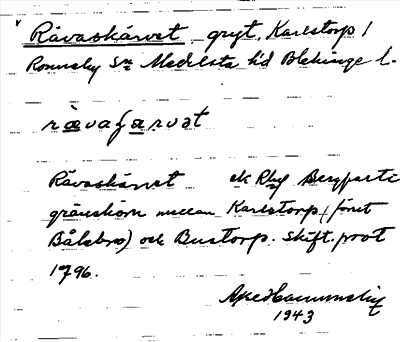 Rävaskärvet, gryt, Karlstorp 1
Ronneby sn Medelsta hd Blekinge l.
rävaʃarvət
Rävaskärvet ek Rbg Bergparti
gränshörn mellan Karlstorp (förut
Bålebro) och Bustorp. Skift. prot
1796.
Åke Hammarskog
1943